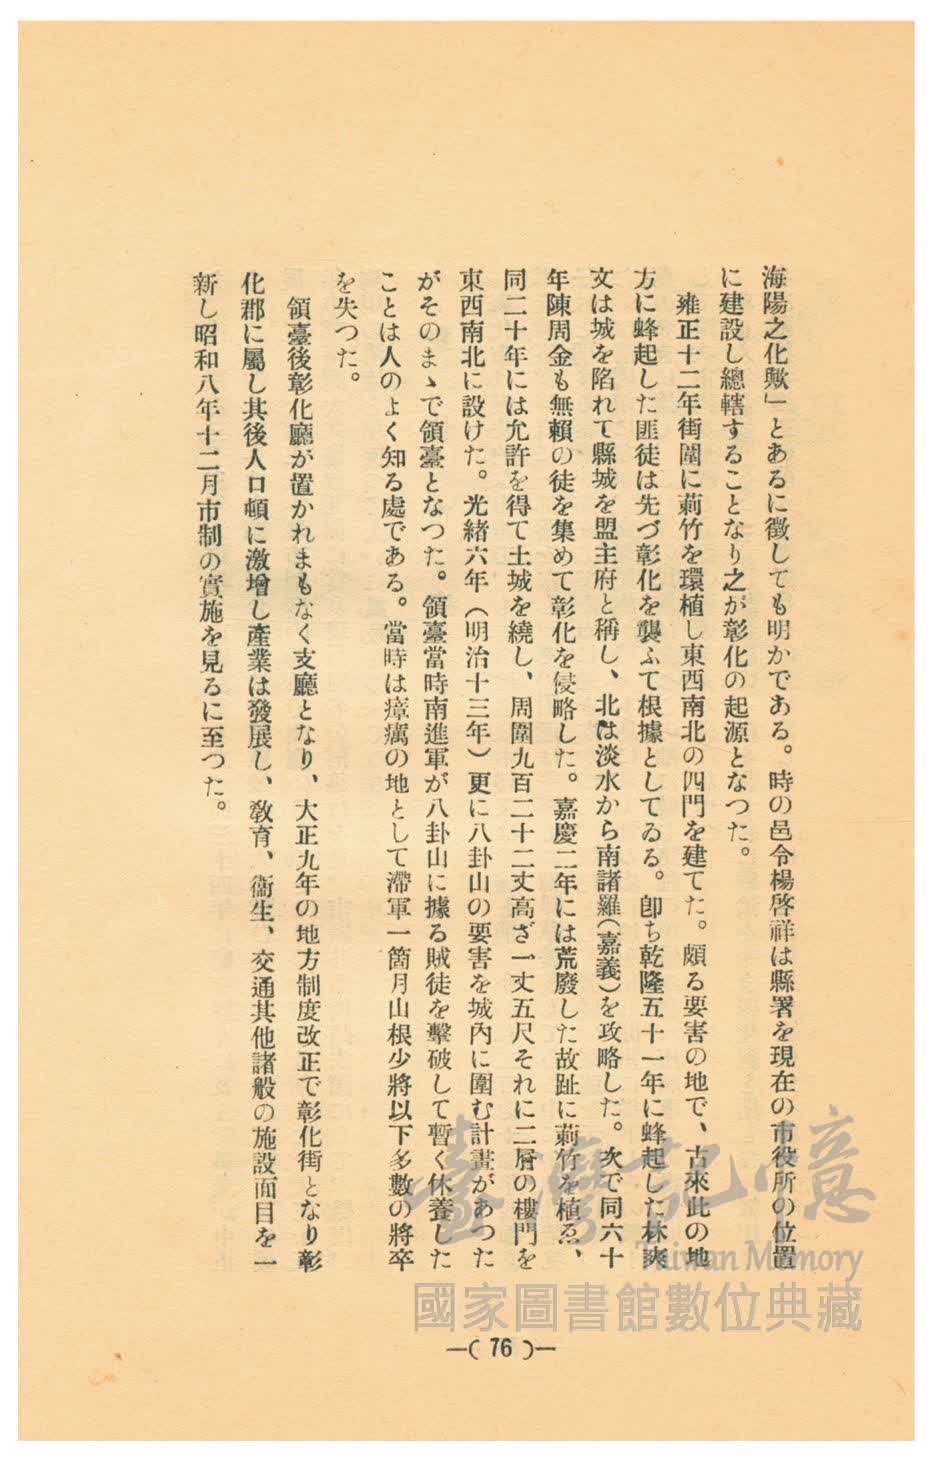 海陽之化歟」とあるに徵しても明かである。時の邑令楊啓祥は縣署を現在の市役所の位置
に建設し總轄することなり之が彰化の起源となつた。
雍正十二年街圍に莿竹を環植し東西南北の四門を建てた。頗る要害の地で、古來此の地
方に蜂起した匪徒は先づ彰化を襲ふて根據としてゐる。卽ち乾隆五十一年に蜂起した林爽
文は城を陷れて縣城を盟主府と稱し、北は淡水から南諸羅(嘉義)を攻略した。次で同六十
年陳周金も無賴の徒を集めて彰化を侵略した。嘉慶二年には荒廢した故趾に莿竹を植ゑ、
同二十年には允許を得て土城を繞し、周圍九百二十二丈高ざ一丈五尺それに二層の樓門を
東西南北に設けた。光緒六年(明治十三年)更に八卦山の要害を城內に圍む計畫があつた
がそのまゝで領臺となつた。領臺當時南進軍が八卦山に據る賊徒を擊破して暫く休養した
ことは人のよく知る處である。當時は瘴癘の地として滯軍一箇月山根少將以下多數の將卒
を失つた。
領臺後彰化廳が置かれまもなく支廳となり、大正九年の地方制度改正で彰化街となり彰
化郡に屬し其後人口頓に激增し產業は發展し、敎育、衞生、交通其他諸般の施設面目を一
新し昭和八年十二月市制の實施を見るに至つた。
—( 76 )—
臺灣記憶
Taiwan Memory
國家圖書館數位典藏